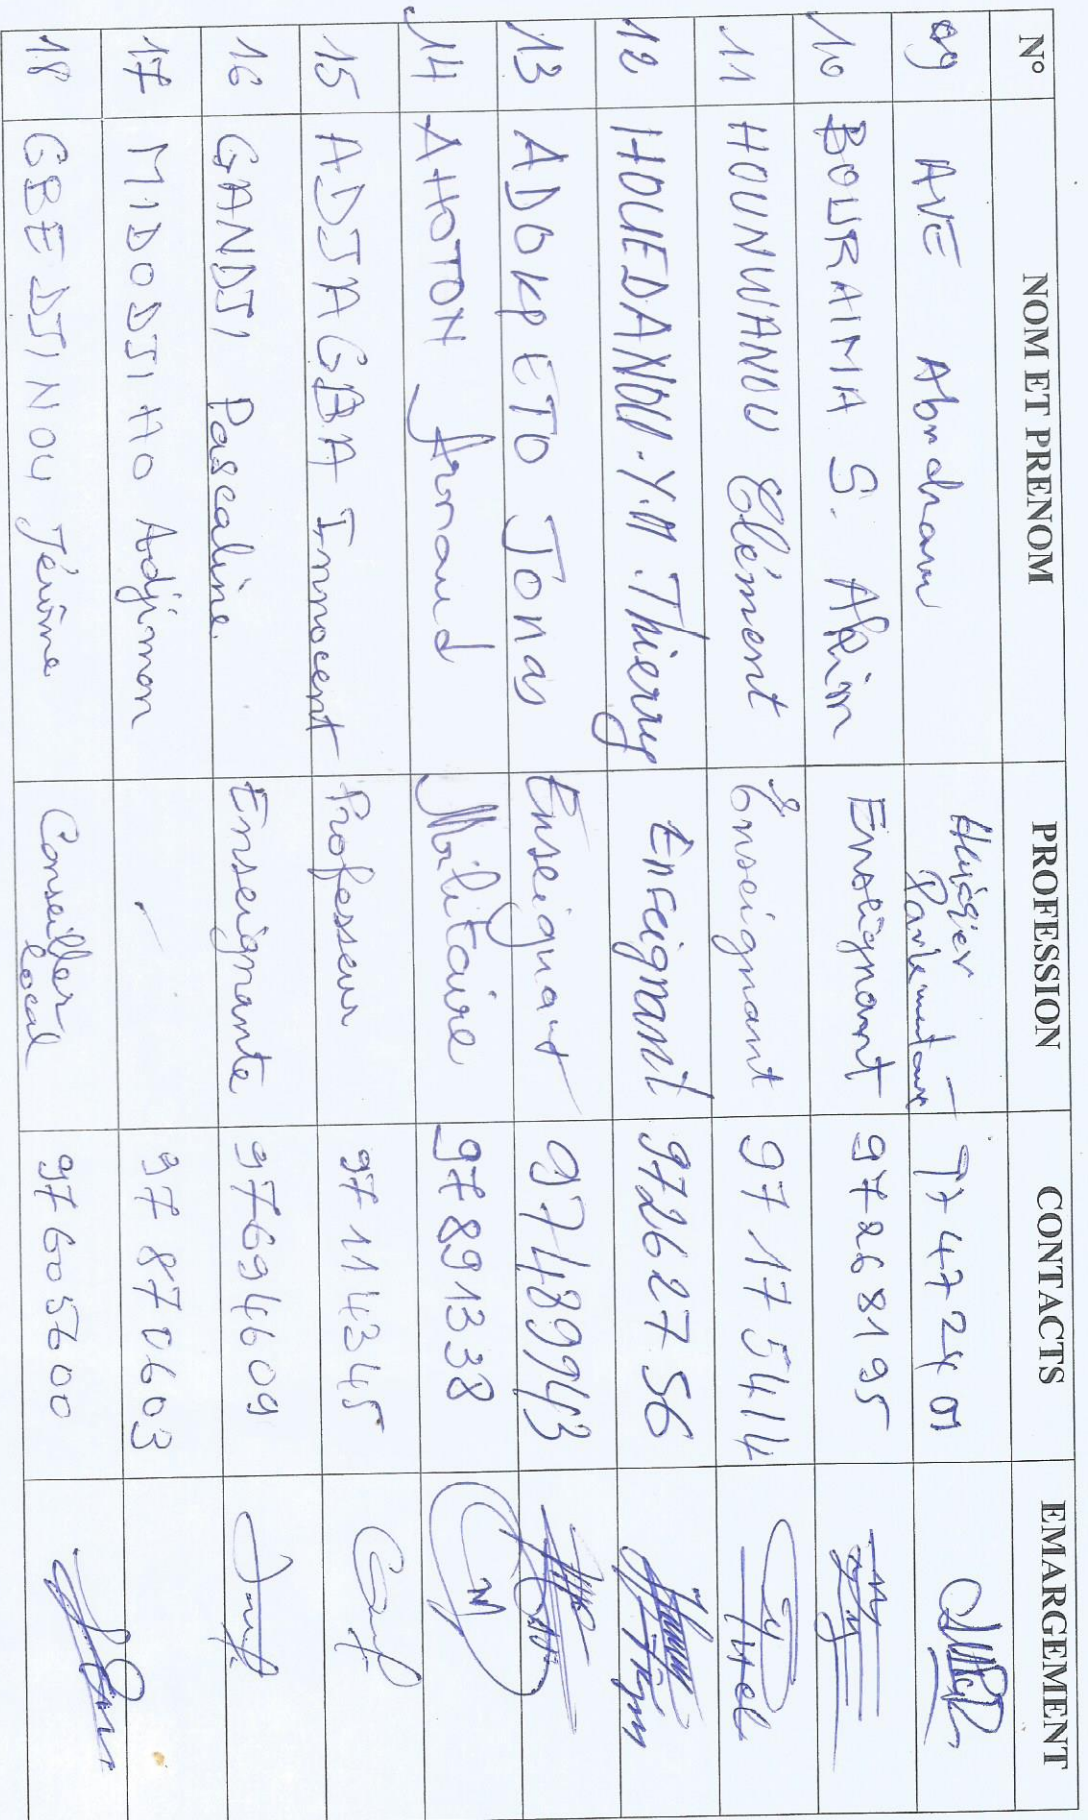 N° NOM ET PRENOM PROFESSION CONTACTS EMARGEMENT
09 AVE Abraham Huissier Parlementaire 97 47 24 01
10 BOURAIMA S. Akim Enseignant 97268195
11 HOUNWANOU Clément Enseignant 97 17 5414
12 HOUEDANOU.Y.M.Thierry Enseignant 97262756
13 ADOKPETO Jonas Enseignant 97489943
14 AHOTON Arnaud Militaire 97891338
15 ADJAGBA Innocent Professeur 97 11 4345
16 GANDJI Pascaline Enseignante 97694609
17 MIDODJIHO Adjimon - 97 87 0603
18 GBEDJINOU Jérôme Conseiller local 97605600